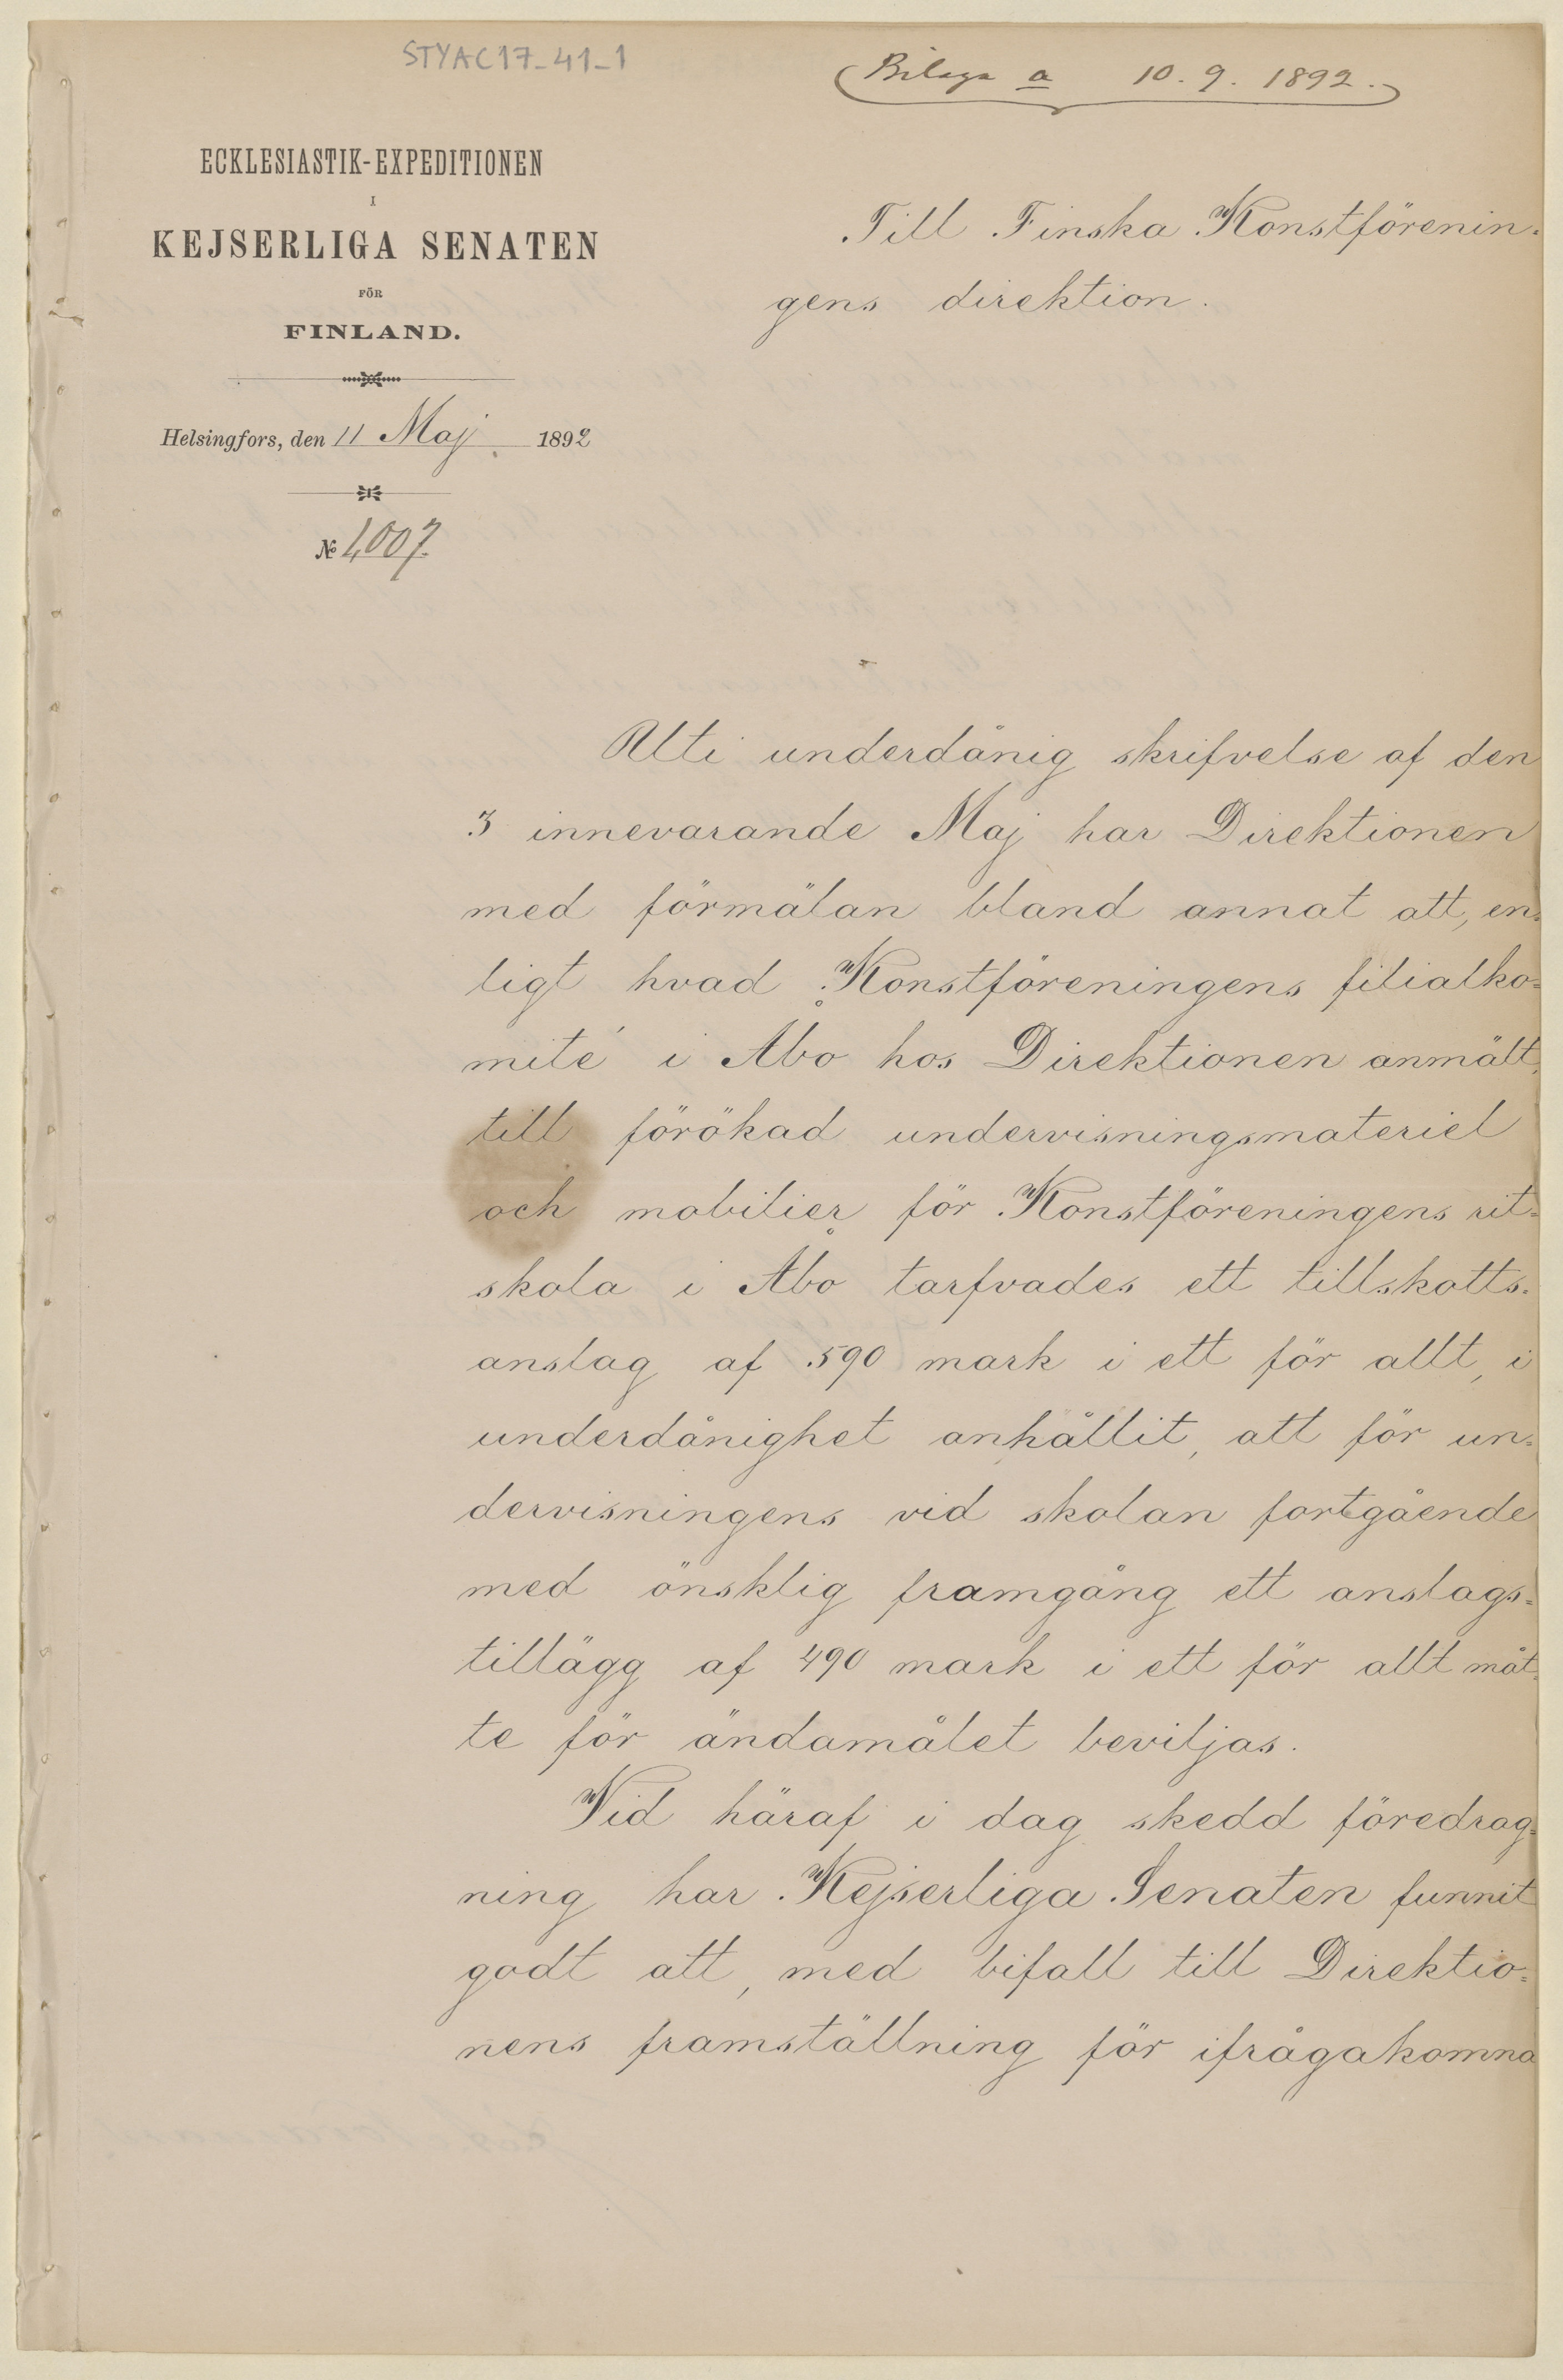 STYAC17-41-1
Bilaga a 10.9.1892.
ECKLESIASTIK-EXPEDITIONEN
I
KEJSERLIGA SENATEN
FÖR
FINLAND.
Helsingfors, den 11 Maj 1892
№ 1,007.
Till Finska Konstförenin-
gens direktion.
Uti underdånig skrifvelse af den
3 innevarande Maj har Direktionen
med förmälan bland annat att, en-
ligt hvad Konstföreningens filialko-
mité i Åbo hos Direktionen anmält,
till förökad undervisningsmateriel
och mobilier för Konstföreningens rit-
skola i Åbo tarfvades ett tillskotts-
anslag af 590 mark i ett för allt, i
underdånighet anhållit, att för un-
dervisningens vid skolan fortgående
med önsklig framgång ett anslags-
tillägg af 490 mark i ett för allt måt-
te för ändamålet beviljas.
Vid häraf i dag skedd föredrag-
ning har Kejserliga Senaten funnit
godt att, med bifall till Direktio-
nens framställning för ifrågakomna